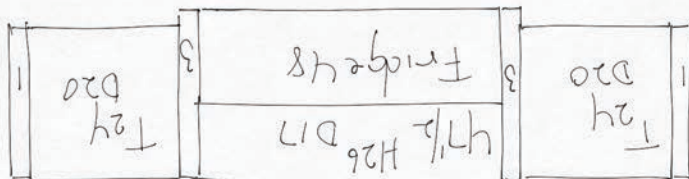 1
T 24
D20
3
47 1/2 H26 D17
Fridge 48
3
T 24
D20
1